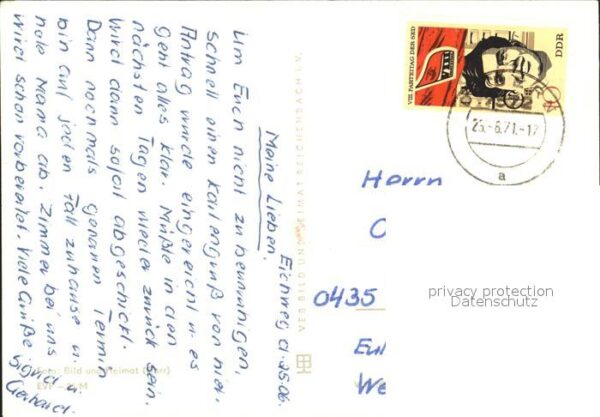 Eichweg d. 25.06.
Meine Lieben.
Um Euch nicht zu beunruhigen,
schnell einen Kartengruß von hier.
Antrag wurde eingereicht u. es
geht alles klar. Müßte in den
nächsten Tagen wieder zurück sein.
Wird dann sofort abgeschickt.
Dann nochmals genauen Termin
bin auf jeden Fall zuhause u.
hole Mama ab. Zimmer bei uns
wird schon vorbereitet. Viele Grüße
Sigrid u.
Gerhard.
VEB BILD UND HEIMAT REICHENBACH I. V.
Foto: Bild und Heimat
EVP
VIII. PARTEITAG DER SED
DDR
10
25.-6.71.-17
a
Herrn
0435
privacy protection
Datenschutz